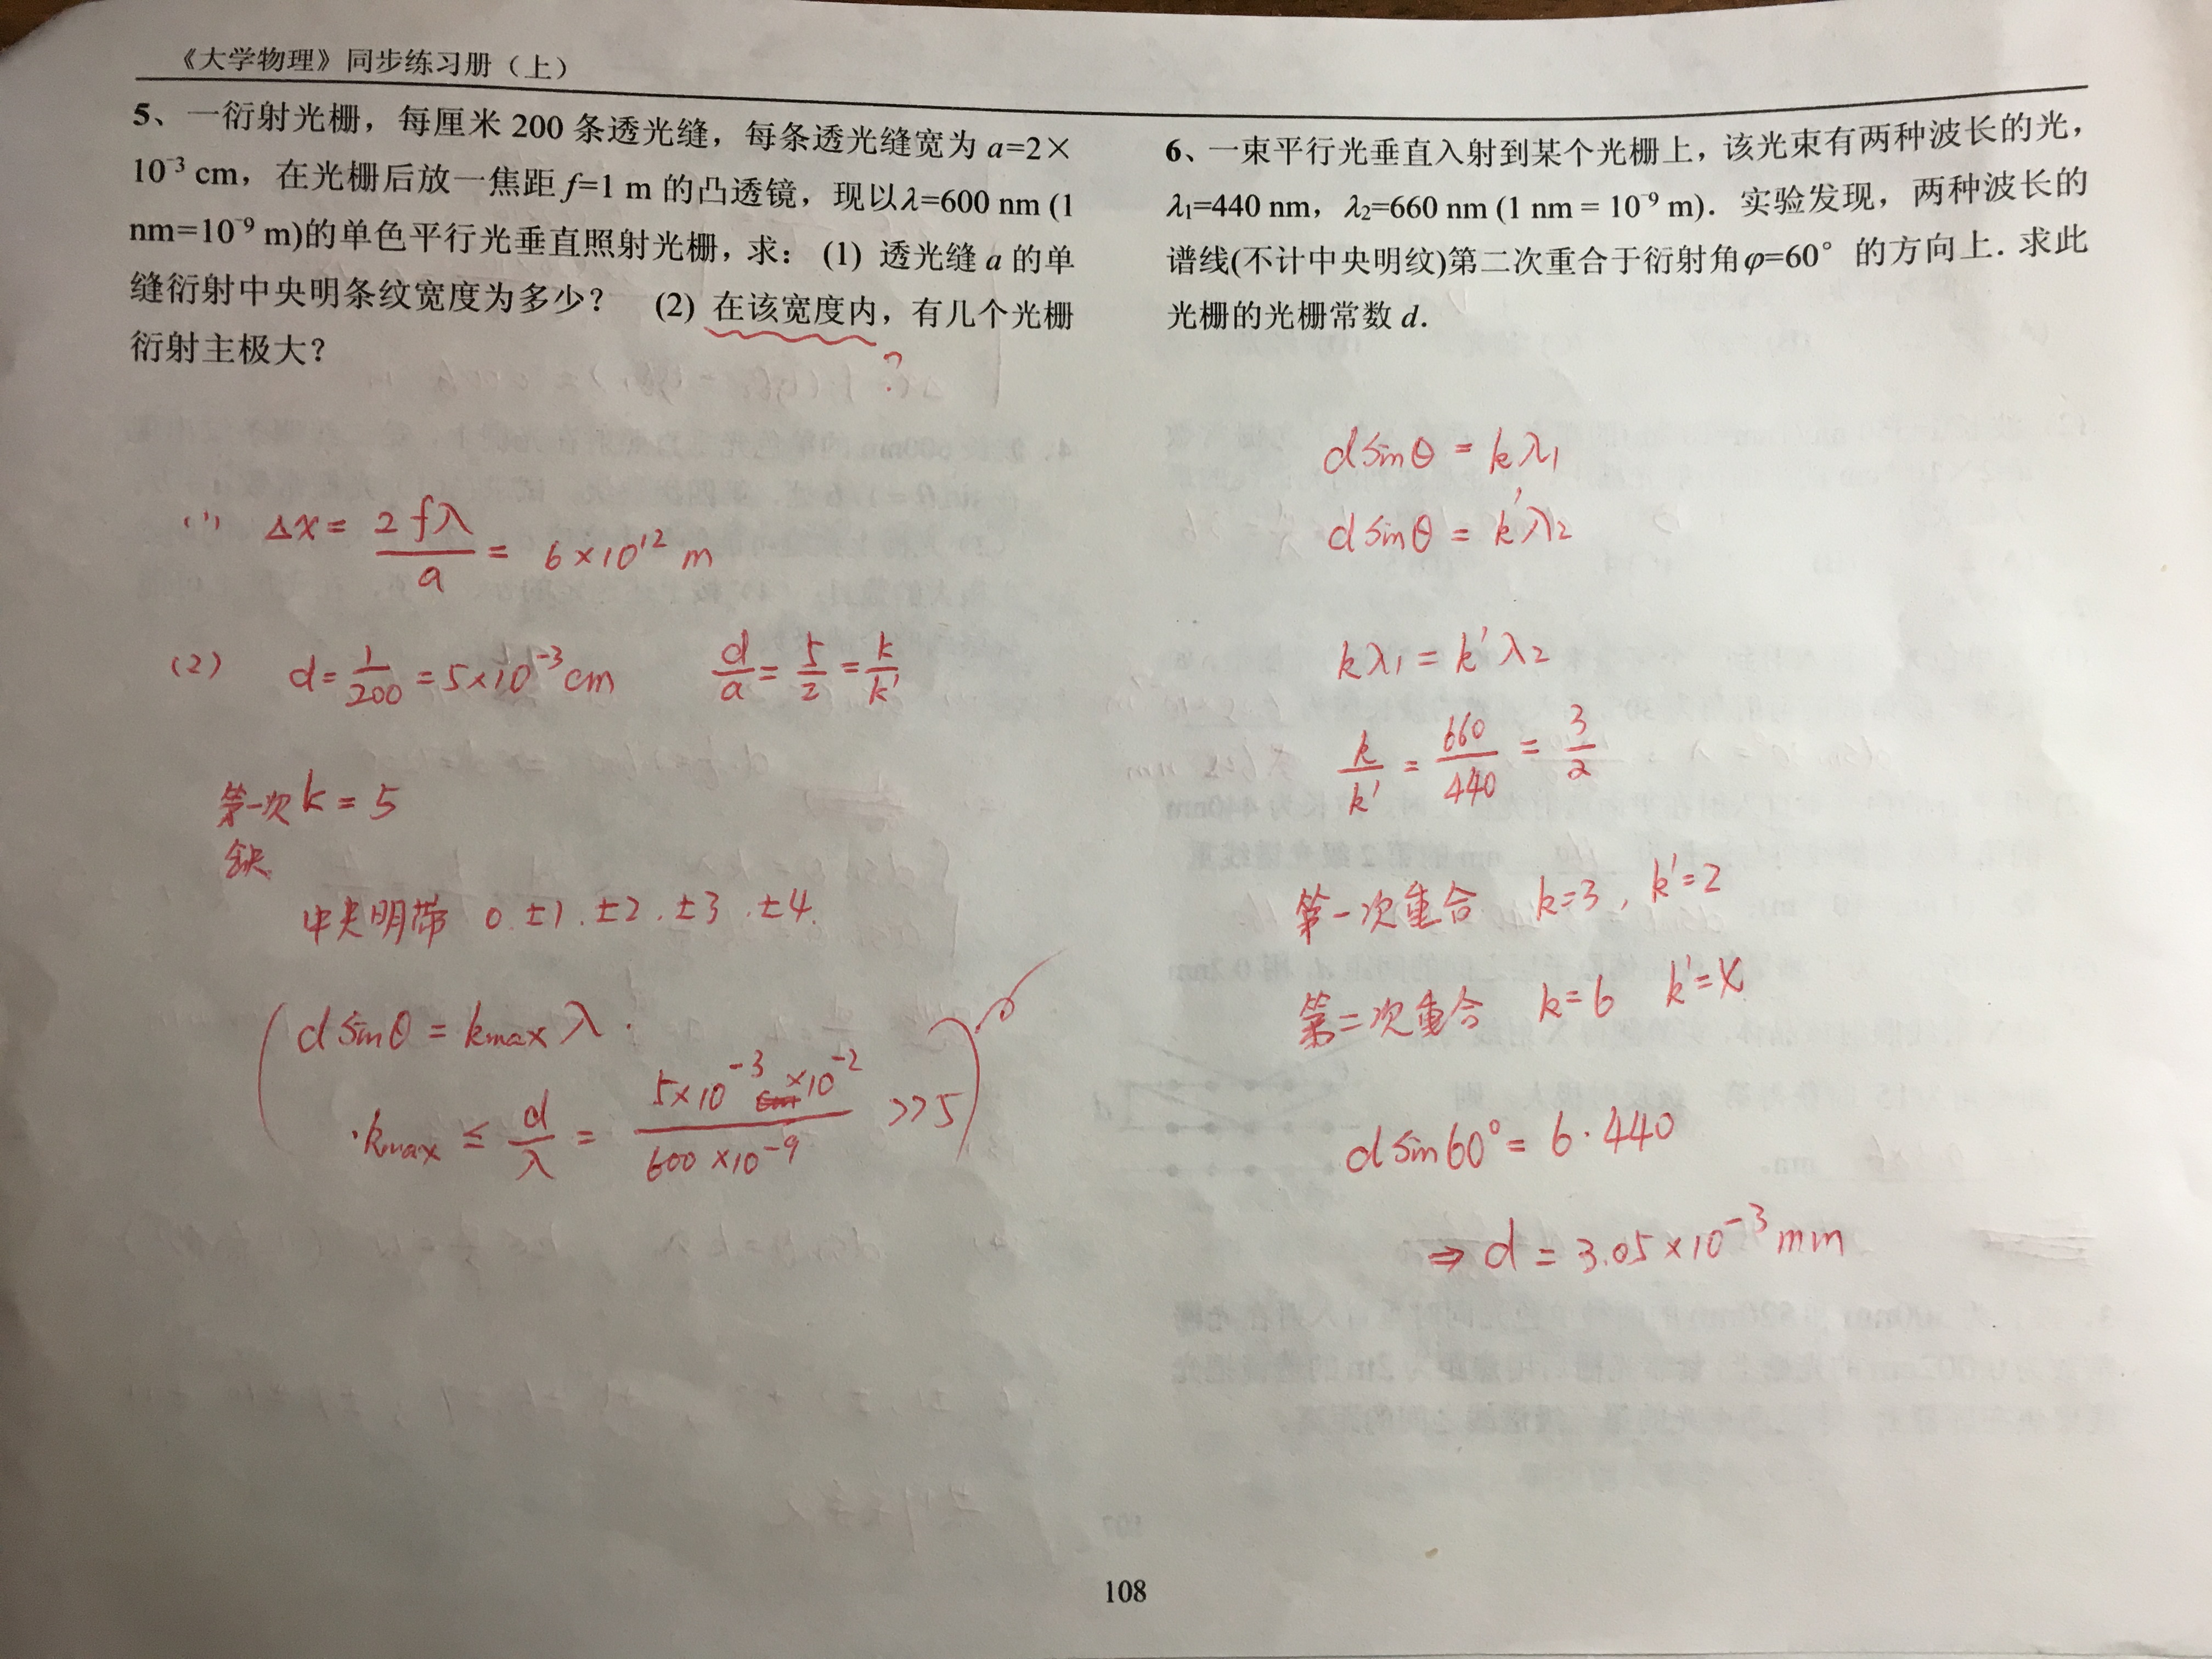 《大学物理》同步练习册（上）
5、一衍射光栅，每厘米 200 条透光缝，每条透光缝宽为 a=2×
10⁻³ cm，在光栅后放一焦距 f=1 m 的凸透镜，现以λ=600 nm (1
nm=10⁻⁹ m)的单色平行光垂直照射光栅，求： (1) 透光缝 a 的单
缝衍射中央明条纹宽度为多少？ (2) 在该宽度内，有几个光栅
衍射主极大？
?
(1) Δx = 2fλ/a = 6×10¹² m
(2) d = 1/200 = 5×10⁻³ cm d/a = 5/2 = k/k'
第一次 k = 5
缺
中央明带 0. ±1. ±2. ±3. ±4.
d sinθ = kmax λ.
kmax ≤ d/λ = 5×10⁻³×10⁻²/600×10⁻⁹ >>5
6、一束平行光垂直入射到某个光栅上，该光束有两种波长的光，
λ₁=440 nm，λ₂=660 nm (1 nm = 10⁻⁹ m)．实验发现，两种波长的
谱线(不计中央明纹)第二次重合于衍射角φ=60°的方向上．求此
光栅的光栅常数 d．
d sinθ = kλ₁
d sinθ = k'λ₂
kλ₁ = k'λ₂
k/k' = 660/440 = 3/2
第一次重合 k=3, k'=2
第二次重合 k=6 k'=
d sin60° = 6·440
⇒ d = 3.05×10⁻³ mm
108